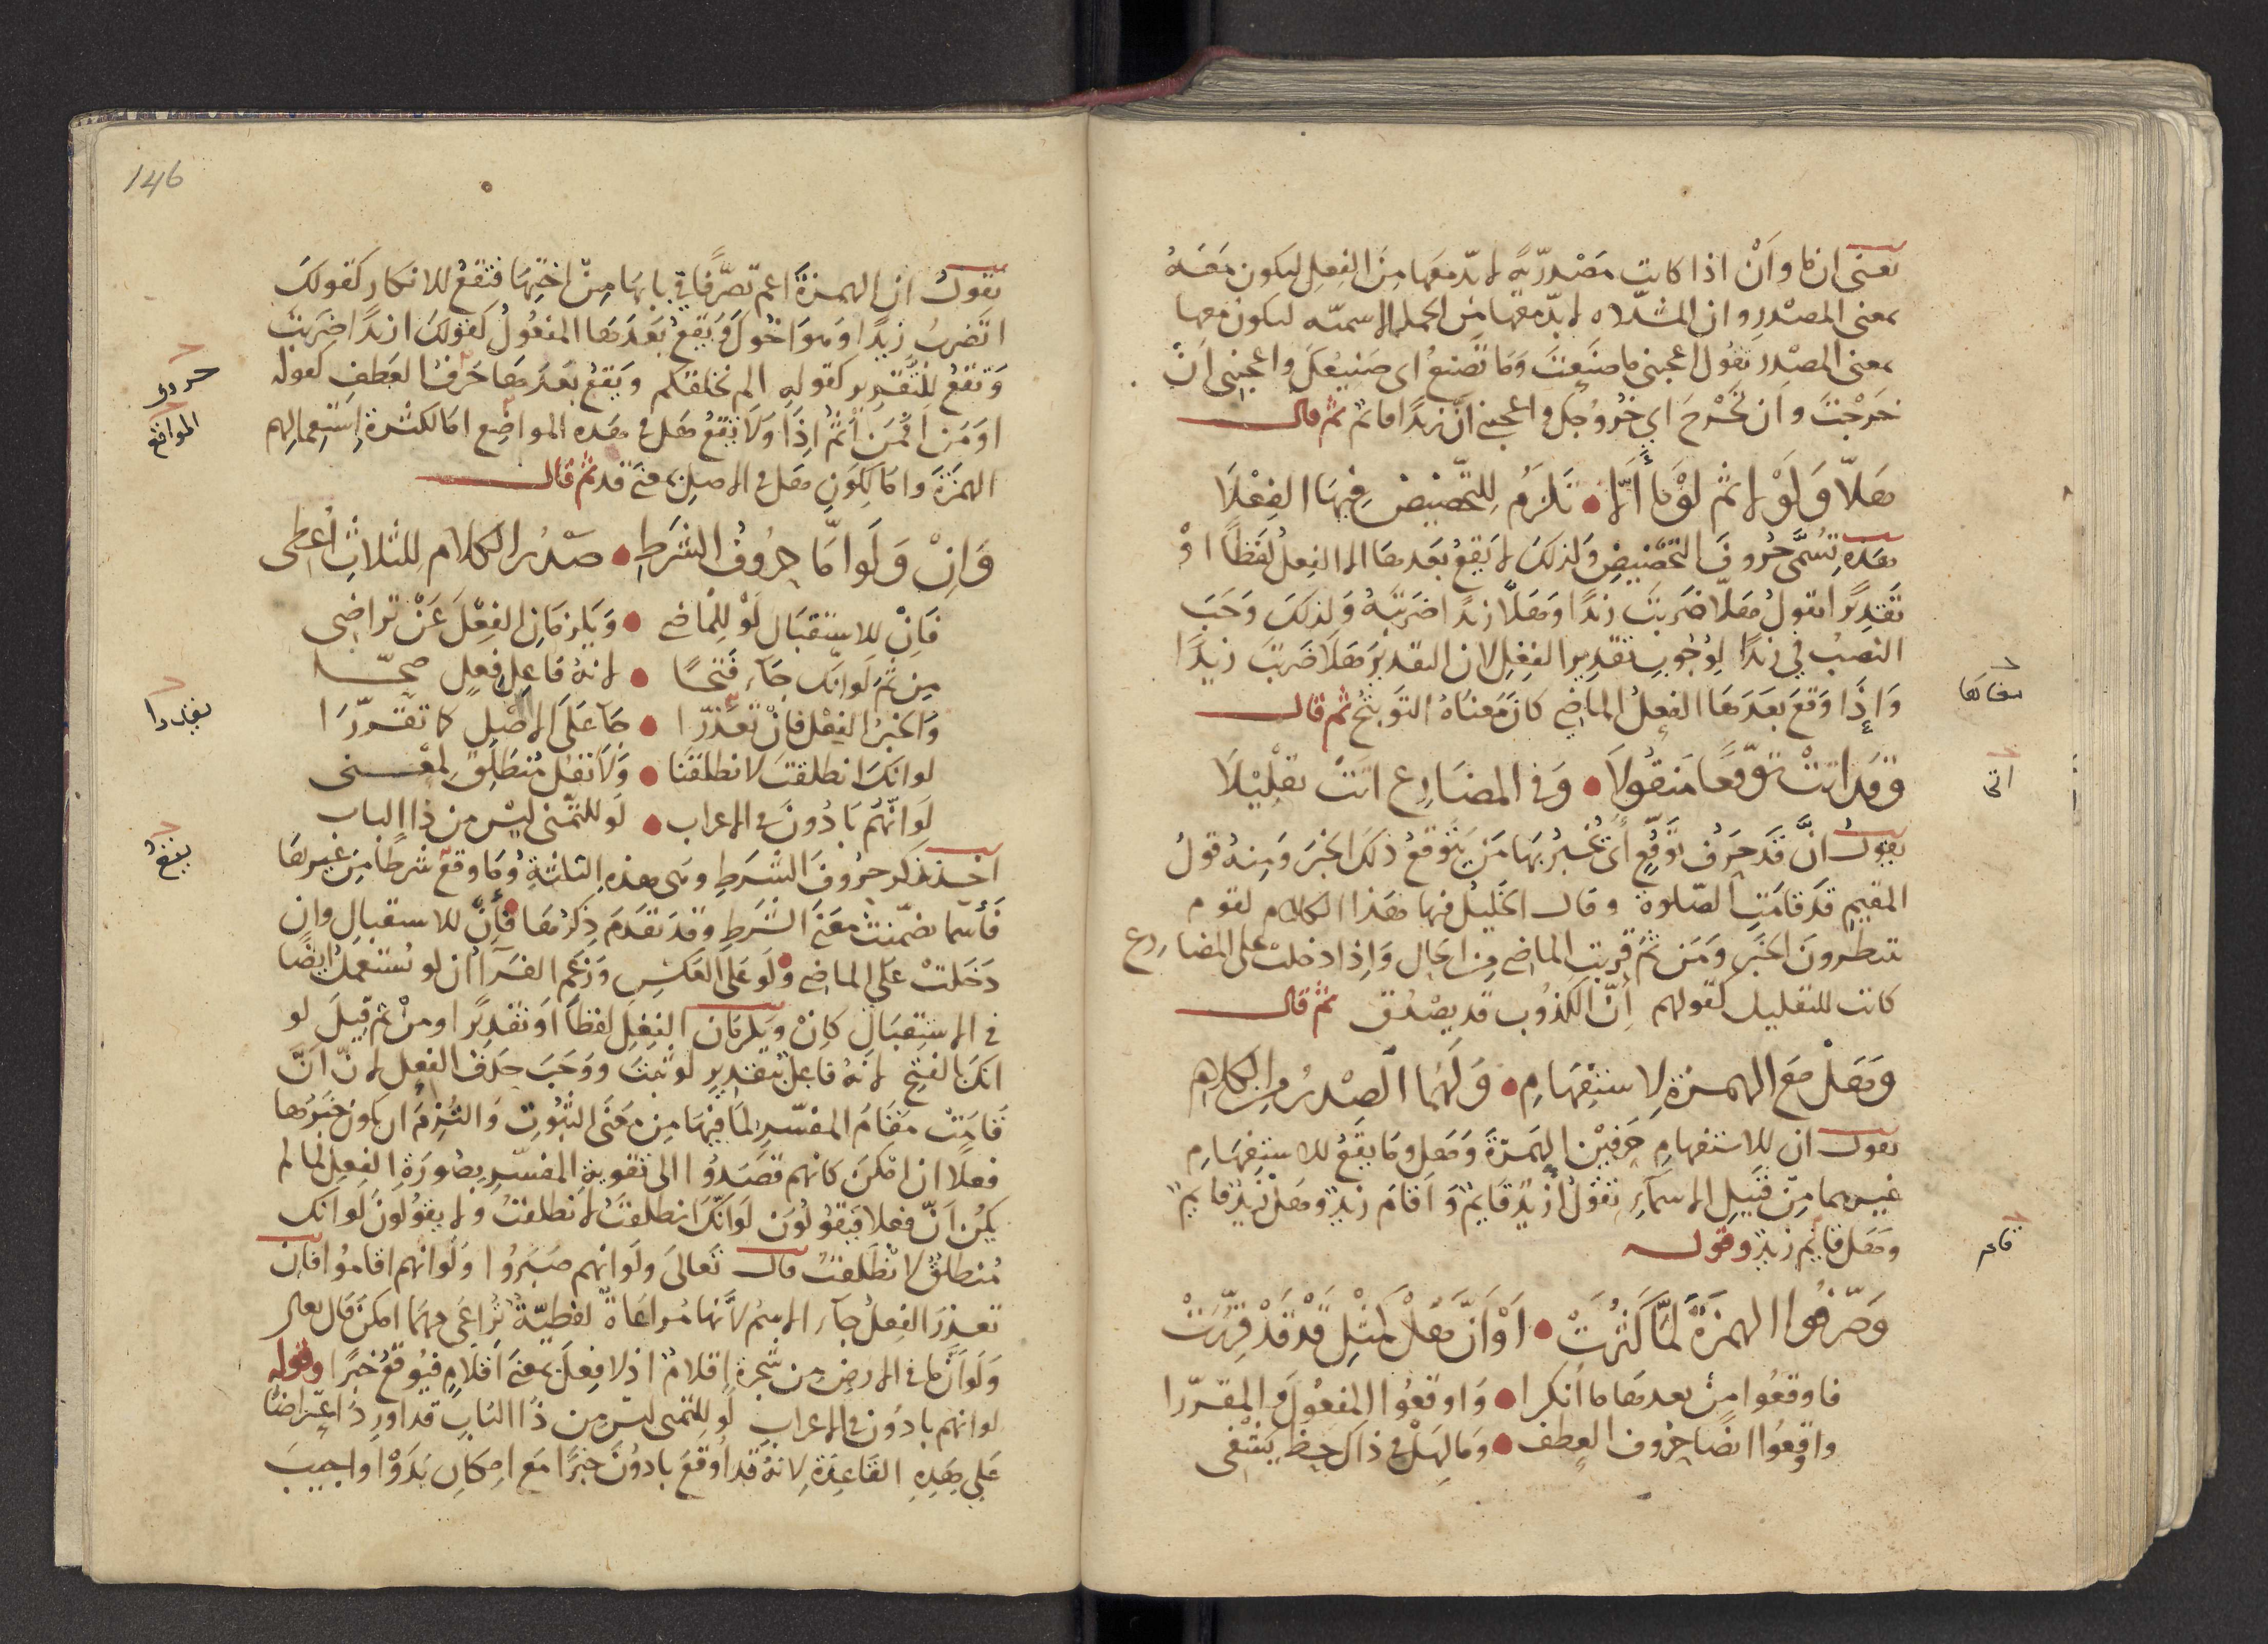 يعنى ان ما وَأَنْ اذا كانت مَصْدريّةً لا بدّ معها مِنَ الفِعلِ ليكون مَعَهُ
بمعنى المصْدرِ وان المشدّده لا بدّ معها مِن الجمله الاسميّه ليكون معها
بمعنى المصْدر تقول اعجبنى ما صَنَعْتَ وَمَا تصنعُ اى صَنيعُكَ واعجبنى اَنْ
خَرَجْتَ وان تَخْرج اي خُرُوجُكَ واعجبني أنّ زيدًا قائم ثم قال
هَلاّ وَلَوْلا ثم لوْمَا أَلّا • تَلزَمُ لِلتّحضيض فِيهَا الفِعْلَا
هَذه تُسَمَّى حُروفَ التّحْضيضِ ولذلكَ لا يَقعُ بَعدهَا الا الفِعلُ لفظًا اوْ
تقدِيرًا تقولُ هَلاّ ضَربتَ زيدًا وهَلاّ زيدًا ضَربتَهُ وَلذلكَ وَجَبَ
النّصْبُ فى زيدًا لِوُجُوبِ تقديرِ الفِعْلِ لان التقديرَ هَلاّ ضَربتَ زيدًا
وَإذَا وَقعَ بَعدَهَا الفعلُ الماضى كانَ مَعْناهُ التّوبيْخُ ثم قال
وَقَد اتتْ توقّعًا مَنقُولَا • وَفى المضَارِع اتتْ تقلِيْلَا
اتى
يقول انّ قَد حَرفُ توَقُّعٍ أى يُخْبرُ بهَا مَن يَتوقعُ ذلكَ الخَبَرَ وَمِنهُ قولُ
المقيمِ قد قامَتِ الصّلوة وقال الخليل فيها هَذا الكلام لقوم
ينتظرونَ الخَبَر وَمَن ثمَ قربت الماضى مِن الحال وَاِذا دخلت على المضارع
كانت للتقليل كقولهم اِنّ الكذوب قد يصْدق ثم قال
وَهَلْ مَعَ الهمزة لِاسْتفْهَامِ • وَلَهُمَا الصّدرُ مِن الكلام
يقول ان للاستفهامِ حَرفَيْن الهَمزةَ وَهَل وما يَقعُ للاستفهَامِ
غيرهما مِنْ قبيلِ الاسمآءِ تقولُ أزيدٌ قَائِمٌ وَاَقامَ زيدٌ وهل زيدٌ قايمٌ
وهَل قايم زيدٌ وقوله
وَصَرّفُوا الهمْزَةَ لمّا كَثُرتْ • اَوْ اَنّ هَلْ كَمثلِ قَدْ قَدْ قُرِّرَتْ
فاوقعُوا مِن بعدهَا ما اُنكرا • وَاوقعُوا المفعُولَ والمقرّرا
واوقعُوا ايضًا حُروف العطف • وَمَا لِهَلْ فى ذاكَ حظ يَقتفى
146
يقولُ ان الهمزةَ اعم تصَرُّفًا فى بابهَا مِنْ اختِهَا فتقعُ للانكار كَقولكَ
اتضربُ زيدًا وَهوَ اخُوكَ وَيقعُ بَعدَهَا المفعُولُ كقولكَ ازيدًا ضَربتَ
وَتقعُ للتّقرير كقولهِ الم نخلقكم وَيَقعُ بَعدَهَا حَرفُ العَطفِ كقوله
اوَ مَن اَفمَن اَثُمَّ اِذَا وَلَا تقعُ هَل فى هَذه المواضِع امّا لكثْرةِ اِسْتِعمالِهم
المواقع
الهمزَةَ وامّا لِكَونِ هَل فى الاصل بمعنى قد ثم قال
وَاِنْ وَلَو امّا حرُوفُ الشرطِ • صَدْرُ الكلام للثلاثِ أُعطى
فَاِنْ للاستقبَال لَوْ لِلماضى • وَيَلزمَانِ الفِعْلَ عَنْ تراضِي
مِن ثَمَّ لَو انّك جآءَ فَتحًا • لانهُ فاعِل فِعلٍ صَحّا
وَالخبَرُ الفِعْل فَانْ تعَذّرا • جآءَ عَلَى الاصْلِ كما تقرّرَا
لو انكَ انطلقتَ لانطلقنَا • وَلَا تقل مُنطَلِقٌ لِمَعْنى
لَوَ انّهُم بَادُونَ فى الاعراب • لَو للتمّنى ليْسَ من ذا الباب
اخذ يذكر حرُوفَ الشّرَطِ وَهى هذهِ الثلثةِ وُمَا وقعَ شرطًا مِن غيرهَا
فَاسْما تضمّنتْ مَعْنَى الشّرَطِ وقد تقدَمَ ذِكرُهَا فَاِنْ للاستقبالِ وان
دَخَلتْ على الماضى وَلَو على العَكسِ وَزعَم الفَرّآءُ ان لو تستعملُ ايضًا
فى الاستِقبَالِ كاِنْ وَيلزمَان الفِعْلَ لفظًا اَو تقدِيرًا ومنْ ثمّ قيلَ لو
انكَ بالفتح لانهُ فاعلٌ بتقديرِ لو ثبتَ ووَجَبَ حذفُ الفعل لانّ اَنَّ
قَامَتْ مَقَامَ المفسّرِ لمَا فيهَا مِن مَعْنَى الثبُوتِ وَالتُزِمَ ان يكون خبَرُهَا
فعلًا ان امْكنَ كانهم قصَدُوا الى تقويةِ المفسّرِ بصُورَةِ الفِعلِ لما لم
يَكُن اَنّ فعلا فيَقولُونَ لَو انّكَ انطلقتَ لانطلقتُ ولا يَقُولُونَ لَو انكَ
مُنطَلقٌ لانطلقتُ قال تَعالىَ ولَو انهم صَبَرُوا وَلَو انهم اقامُوا فان
تعذّرَ الفِعلُ جآءَ الاسمُ لأنّهَا مُراعَاةٌ لفظيّةٌ تُراعَى مهمَا امكنَ قال تعالى
وَلَو اَنّ ما فى الارض من شجَرة اقلامٌ اذ لا فعلَ بمعنىَ اَقلامٍ فيُوقعُ خبَرًا وقوله
لو انهم بادُون فى الاعراب لَو للتمنى ليْسَ مِن ذَا البَابِ قد اوردَ اعتراضًا
عَلى هَذِهِ القَاعِدَةِ لانهُ قد اَوقعَ بادُونَ خَبَرًا مَع امكانِ بَدَوْا واجيبَ